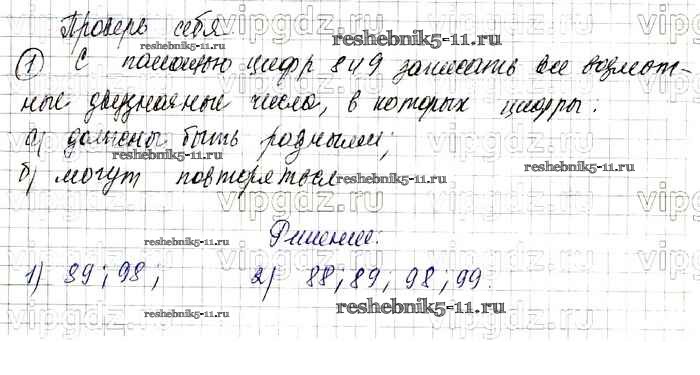 Проверь себя
① С помощью цифр 8 и 9 записать все возмож-
ные двузначные числа, в которых цифры:
а) должны быть разными;
б) могут повторяться
Решение:
1) 89; 98; 2) 88; 89; 98; 99.
reshebnik5-11.ru
reshebnik5-11.ru
reshebnik5-11.ru
reshebnik5-11.ru
reshebnik5-11.ru
reshebnik5-11.ru
reshebnik5-11.ru
reshebnik5-11.ru
vipgdz.ru
vipgdz.ru
vipgdz.ru
vipgdz.ru